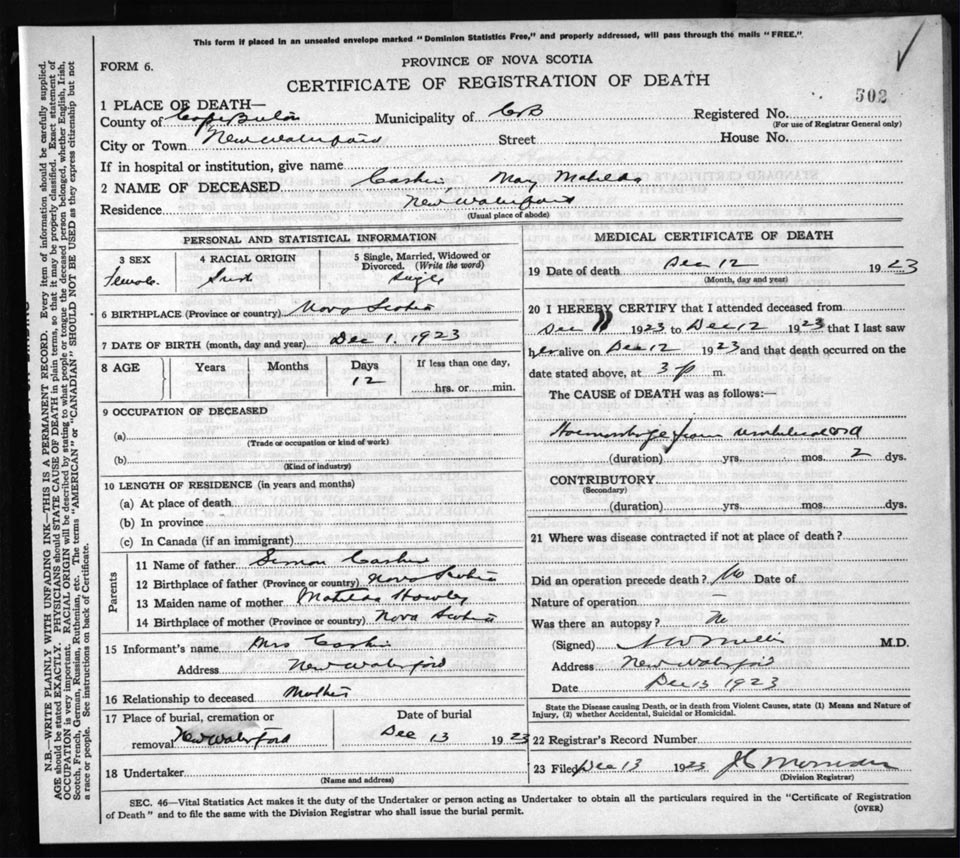 This form if placed in an unsealed envelope marked "Dominion Statistics Free," and properly addressed, will pass through the mails "FREE."
FORM 6.
PROVINCE OF NOVA SCOTIA
CERTIFICATE OF REGISTRATION OF DEATH
502
1 PLACE OF DEATH—
County of Cape Breton Municipality of CB Registered No.
(For use of Registrar General only)
City or Town New Waterford Street House No.
If in hospital or institution, give name
2 NAME OF DECEASED Cashin, May Matilda
Residence New Waterford
(Usual place of abode)
PERSONAL AND STATISTICAL INFORMATION
3 SEX 4 RACIAL ORIGIN 5 Single, Married, Widowed or Divorced. (Write the word)
Female. Irish Single
6 BIRTHPLACE (Province or country) Nova Scotia
7 DATE OF BIRTH (month, day and year) Dec 1. 1923
8 AGE Years Months Days If less than one day,
12 hrs. or min.
9 OCCUPATION OF DECEASED
(a)
(Trade or occupation or kind of work)
(b)
(Kind of industry)
10 LENGTH OF RESIDENCE (in years and months)
(a) At place of death
(b) In province
(c) In Canada (if an immigrant)
Parents
11 Name of father Simon Cashin
12 Birthplace of father (Province or country) Nova Scotia
13 Maiden name of mother Matilda Howley
14 Birthplace of mother (Province or country) Nova Scotia
15 Informant's name Mrs Cashin
Address New Waterford
16 Relationship to deceased Mother
17 Place of burial, cremation or Date of burial
removal New Waterford Dec 13 1923
18 Undertaker
(Name and address)
MEDICAL CERTIFICATE OF DEATH
19 Date of death Dec 12 1923
(Month, day and year)
20 I HEREBY CERTIFY that I attended deceased from
Dec 11 1923 to Dec 12 1923 that I last saw
her alive on Dec 12 1923 and that death occurred on the
date stated above, at 3 p m.
The CAUSE of DEATH was as follows:—
Haemorrhage from umbilical cord
(duration) yrs. mos. 2 dys.
CONTRIBUTORY
(Secondary)
(duration) yrs. mos. dys.
21 Where was disease contracted if not at place of death?
Did an operation precede death? No Date of
Nature of operation —
Was there an autopsy? No
(Signed) M.D.
Address New Waterford
Date Dec 13 1923
State the Disease causing Death, or in death from Violent Causes, state (1) Means and Nature of
Injury, (2) whether Accidental, Suicidal or Homicidal.
22 Registrar's Record Number
23 Filed Dec 13 1923
(Division Registrar)
SEC. 46—Vital Statistics Act makes it the duty of the Undertaker or person acting as Undertaker to obtain all the particulars required in the "Certificate of Registration
of Death" and to file the same with the Division Registrar who shall issue the burial permit.
(OVER)
N.B.—WRITE PLAINLY WITH UNFADING INK—THIS IS A PERMANENT RECORD. Every item of information should be carefully supplied.
AGE should be stated EXACTLY. PHYSICIANS should STATE CAUSE OF DEATH in plain terms, so that it may be properly classified. Exact statement of
OCCUPATION is very important. RACIAL ORIGIN will be described by stating to what people or tongue the deceased person belonged, whether English, Irish,
Scotch, French, German, Russian, Ruthenian, etc. The terms "AMERICAN" or "CANADIAN" SHOULD NOT BE USED as they express citizenship but not
a race or people. See instructions on back of Certificate.